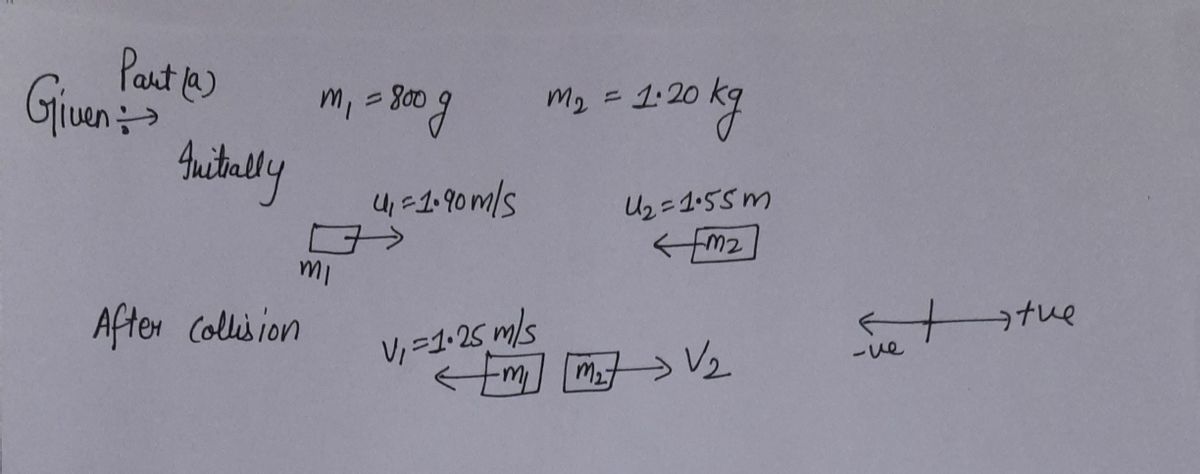 Part (a)
Given :→ m₁ = 800 g m₂ = 1.20 kg
Initially
u₁ = 1.90 m/s u₂ = 1.55 m
m₁ m₂
After Collision
V₁ = 1.25 m/s
m₁ m₂ V₂
-ve +ve